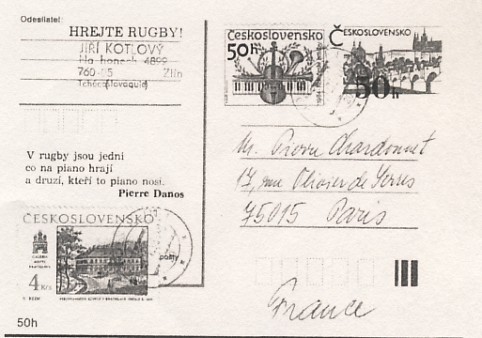 Odesílatel:
HREJTE RUGBY!
JIŘÍ KOTLOVÝ
Na honech 4899
760 05 Zlín
Tchécoslovaquie
V rugby jsou jedni
co na piano hrají
a druzí, kteří to piano nosí.
Pierre Danos
ČESKOSLOVENSKO
50h
ČESKOSLOVENSKO
50h
M. Pierre Chardonnet
17, rue Olivier de Serres
75015 Paris
France
ČESKOSLOVENSKO
4 Kčs
50h